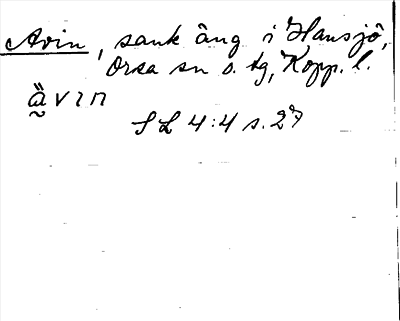 Avin, sank äng i Hansjö,
Orsa sn o. tg, Kopp. l.
SL 4:4 s. 27